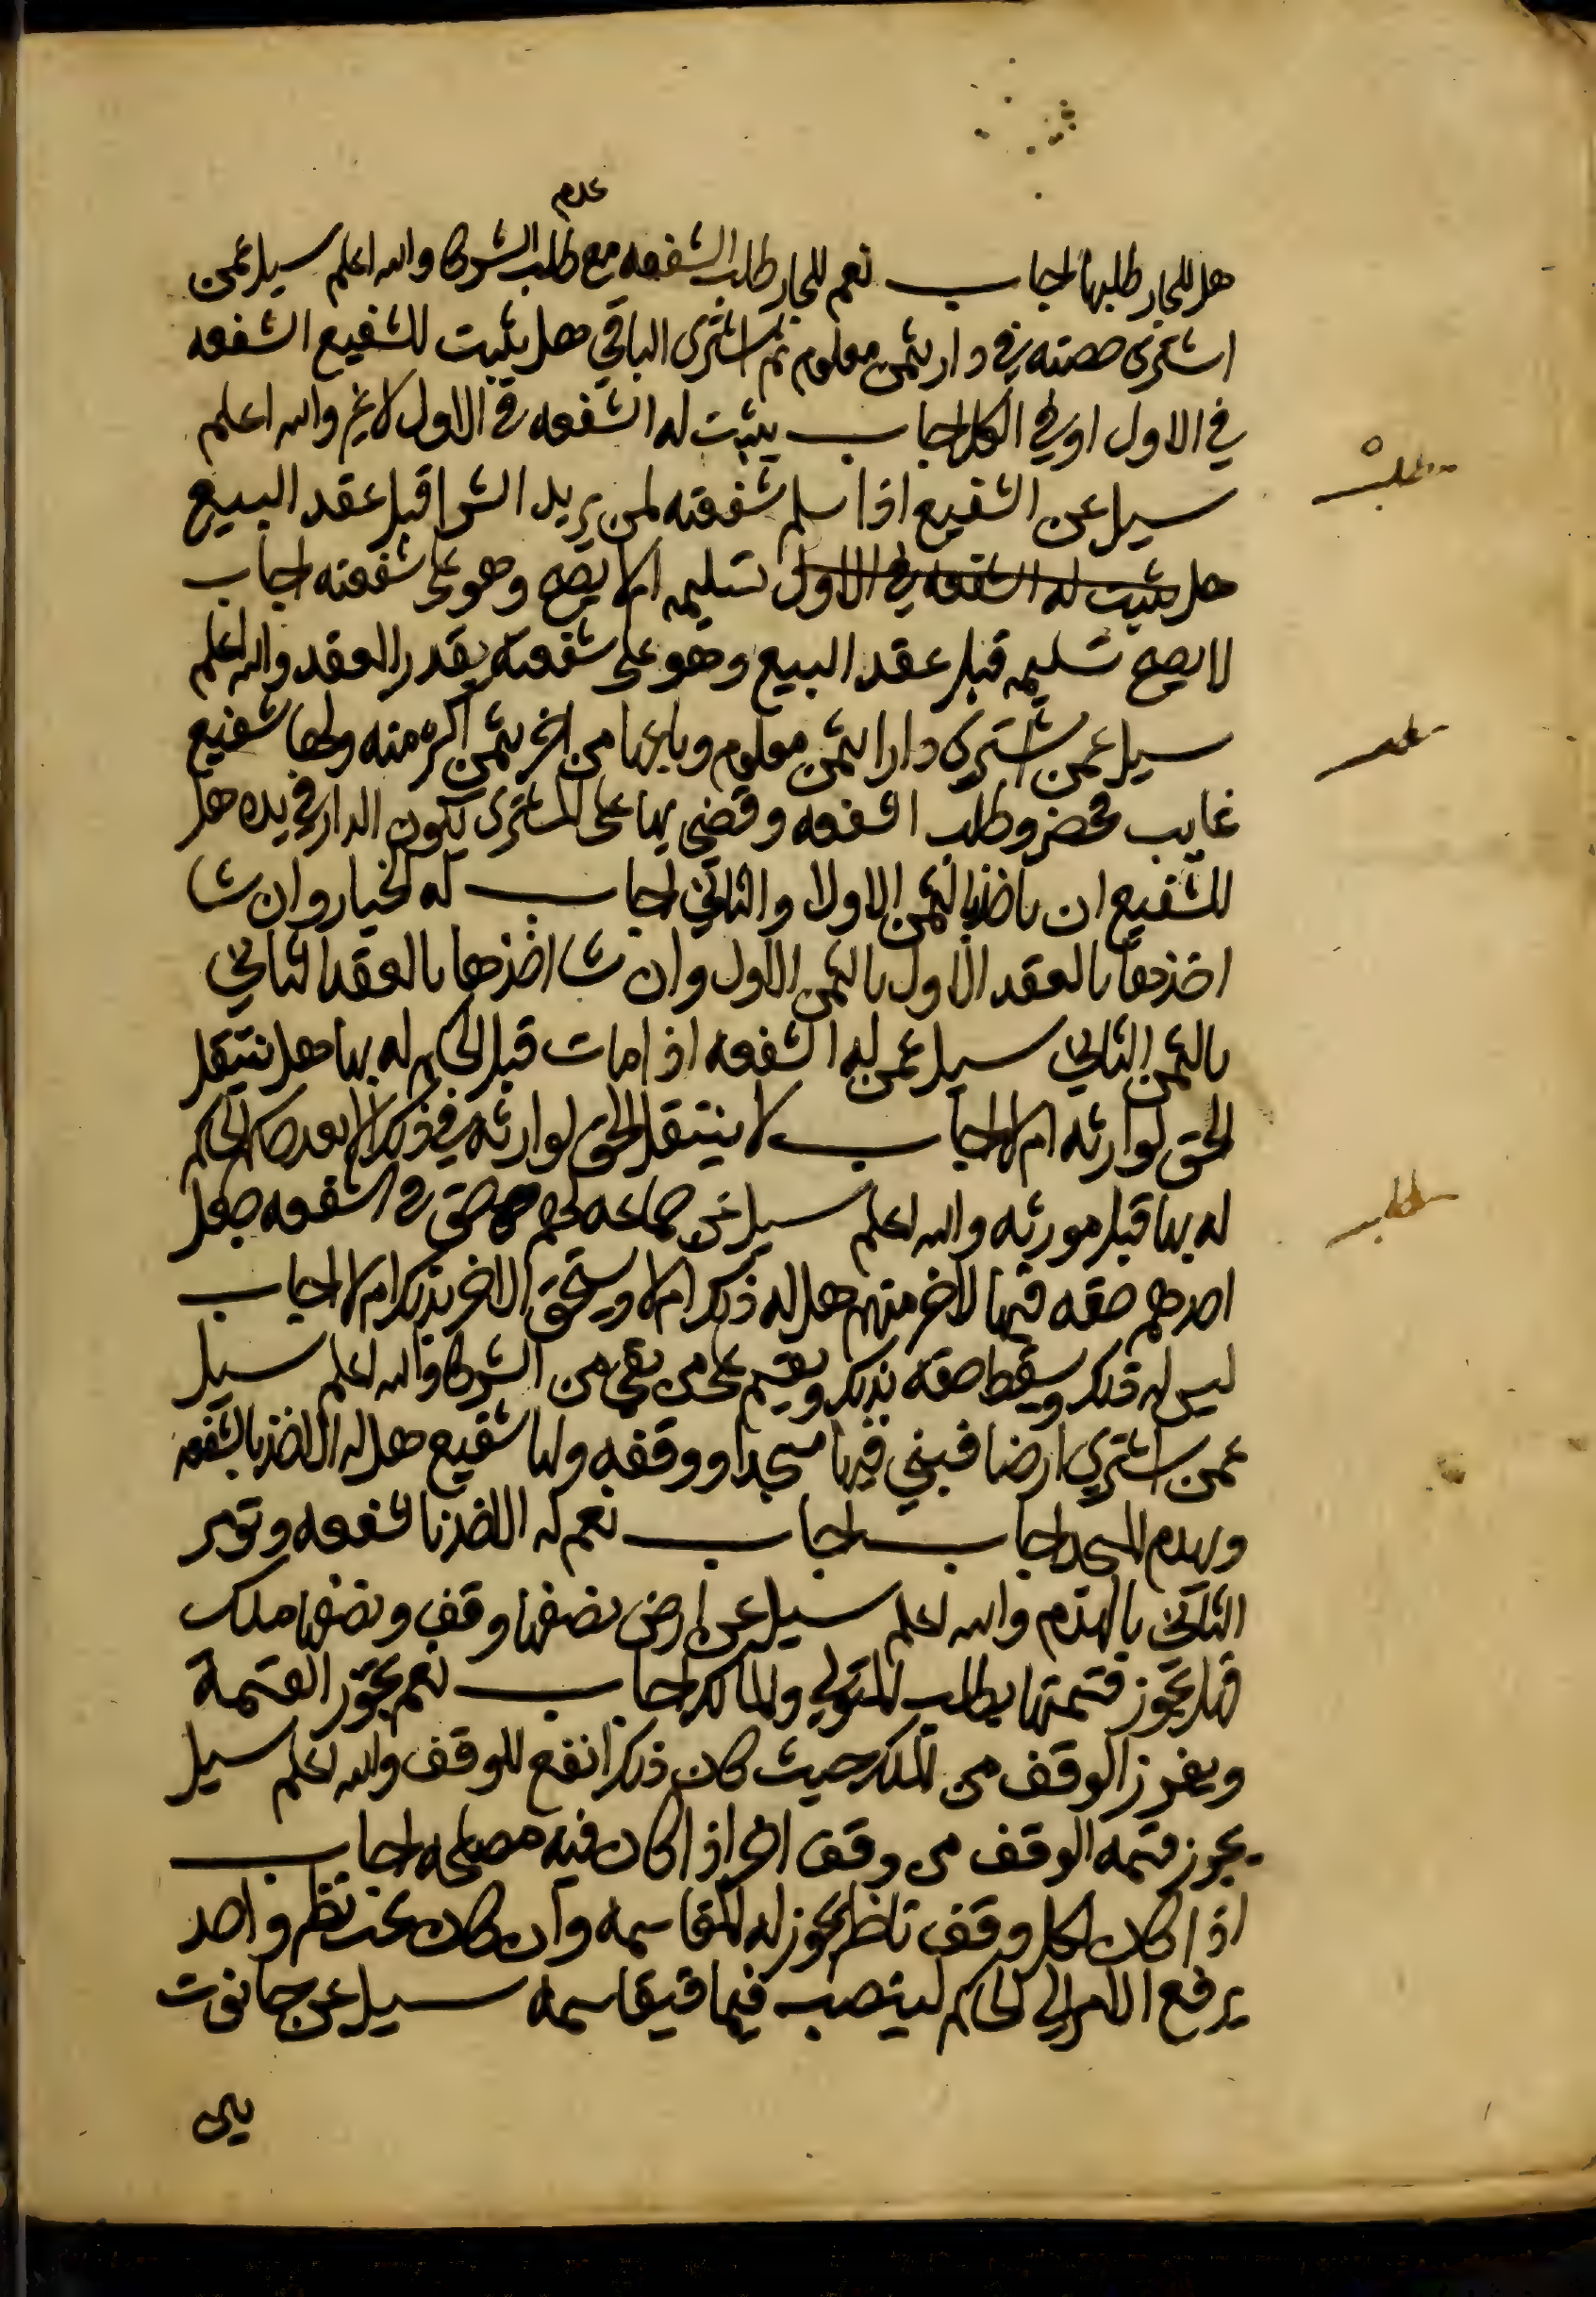 عدم
هل للجار طلبها اجاب نعم للجار طلب الشفعه مع طلب الشركا والله اعلم سيل عمن
اشترى حصته في دار بثمن معلوم ثم اشترى الباقي هل يثبت للشفيع الشفعه
في الاول او في الكل اجاب يثبت له الشفعه في الاول لا غير والله اعلم
مطلب
سيل عن الشفيع اذا سلم شفعته لمن يريد الشرا قبل عقد البيع
هل يثبت له الشفعه في الاول تسليمه ام لا يصح وهو على شفعته اجاب
لا يصح تسليمه قبل عقد البيع وهو على شفعته بعد العقد والله اعلم
سيل عمن اشترى دارا بثمن معلوم وباعها من اخر بثمن اكثر منه ولها شفيع
غايب فحضر وطلب الشفعه وقضى بها على المشترى يكون الدار في يده هل
للشفيع ان ياخذ بالثمن الاول او الثاني اجاب له الخيار وان شا
اخذها بالعقد الاول بالثمن الاول وان شا اخذها بالعقد الثاني
بالثمن الثاني سيل عمن له الشفعه اذا مات قبل الحكم له بها هل ينتقل
الحق لوارثه ام لا اجاب لا ينتقل الحق لوارثه في ذلك الا بعد حكم الحاكم
له بها قبل مورثه والله اعلم سيل عن جماعه لهم حق في الشفعه جعل
مطلب
احدهم حقه فيها لاخر منهم هل له ذلك ام لا ويستحق الاخر بذلك ام لا اجاب
ليس له ذلك ويسقط حقه بذلك ويقسم على من بقي من الشركا والله اعلم سيل
عمن اشترى ارضا فبنى فيها مسجدا ووقفه ولها شفيع هل له الاخذ بالشفعه
ويهدم المسجد اجاب اجاب نعم له الاخذ بالشفعه ويومر
الثاني بالهدم والله اعلم سيل عن ارض نصفها وقف ونصفها ملك
فهل يجوز قسمتها بطلب المتولي والمالك اجاب نعم يجوز القسمة
ويفرز الوقف من الملك حيث كان ذلك انفع للوقف والله اعلم سيل
يجوز قسمه الوقف من وقف اخر اذا كان فيه مصلحه اجاب
اذا كان لكل وقف ناظر يجوز له المقاسمه وان كان تحت نظر واحد
يرفع الامر الى الحاكم لينصب قيما فيقاسمه سيل عن حانوت
بين